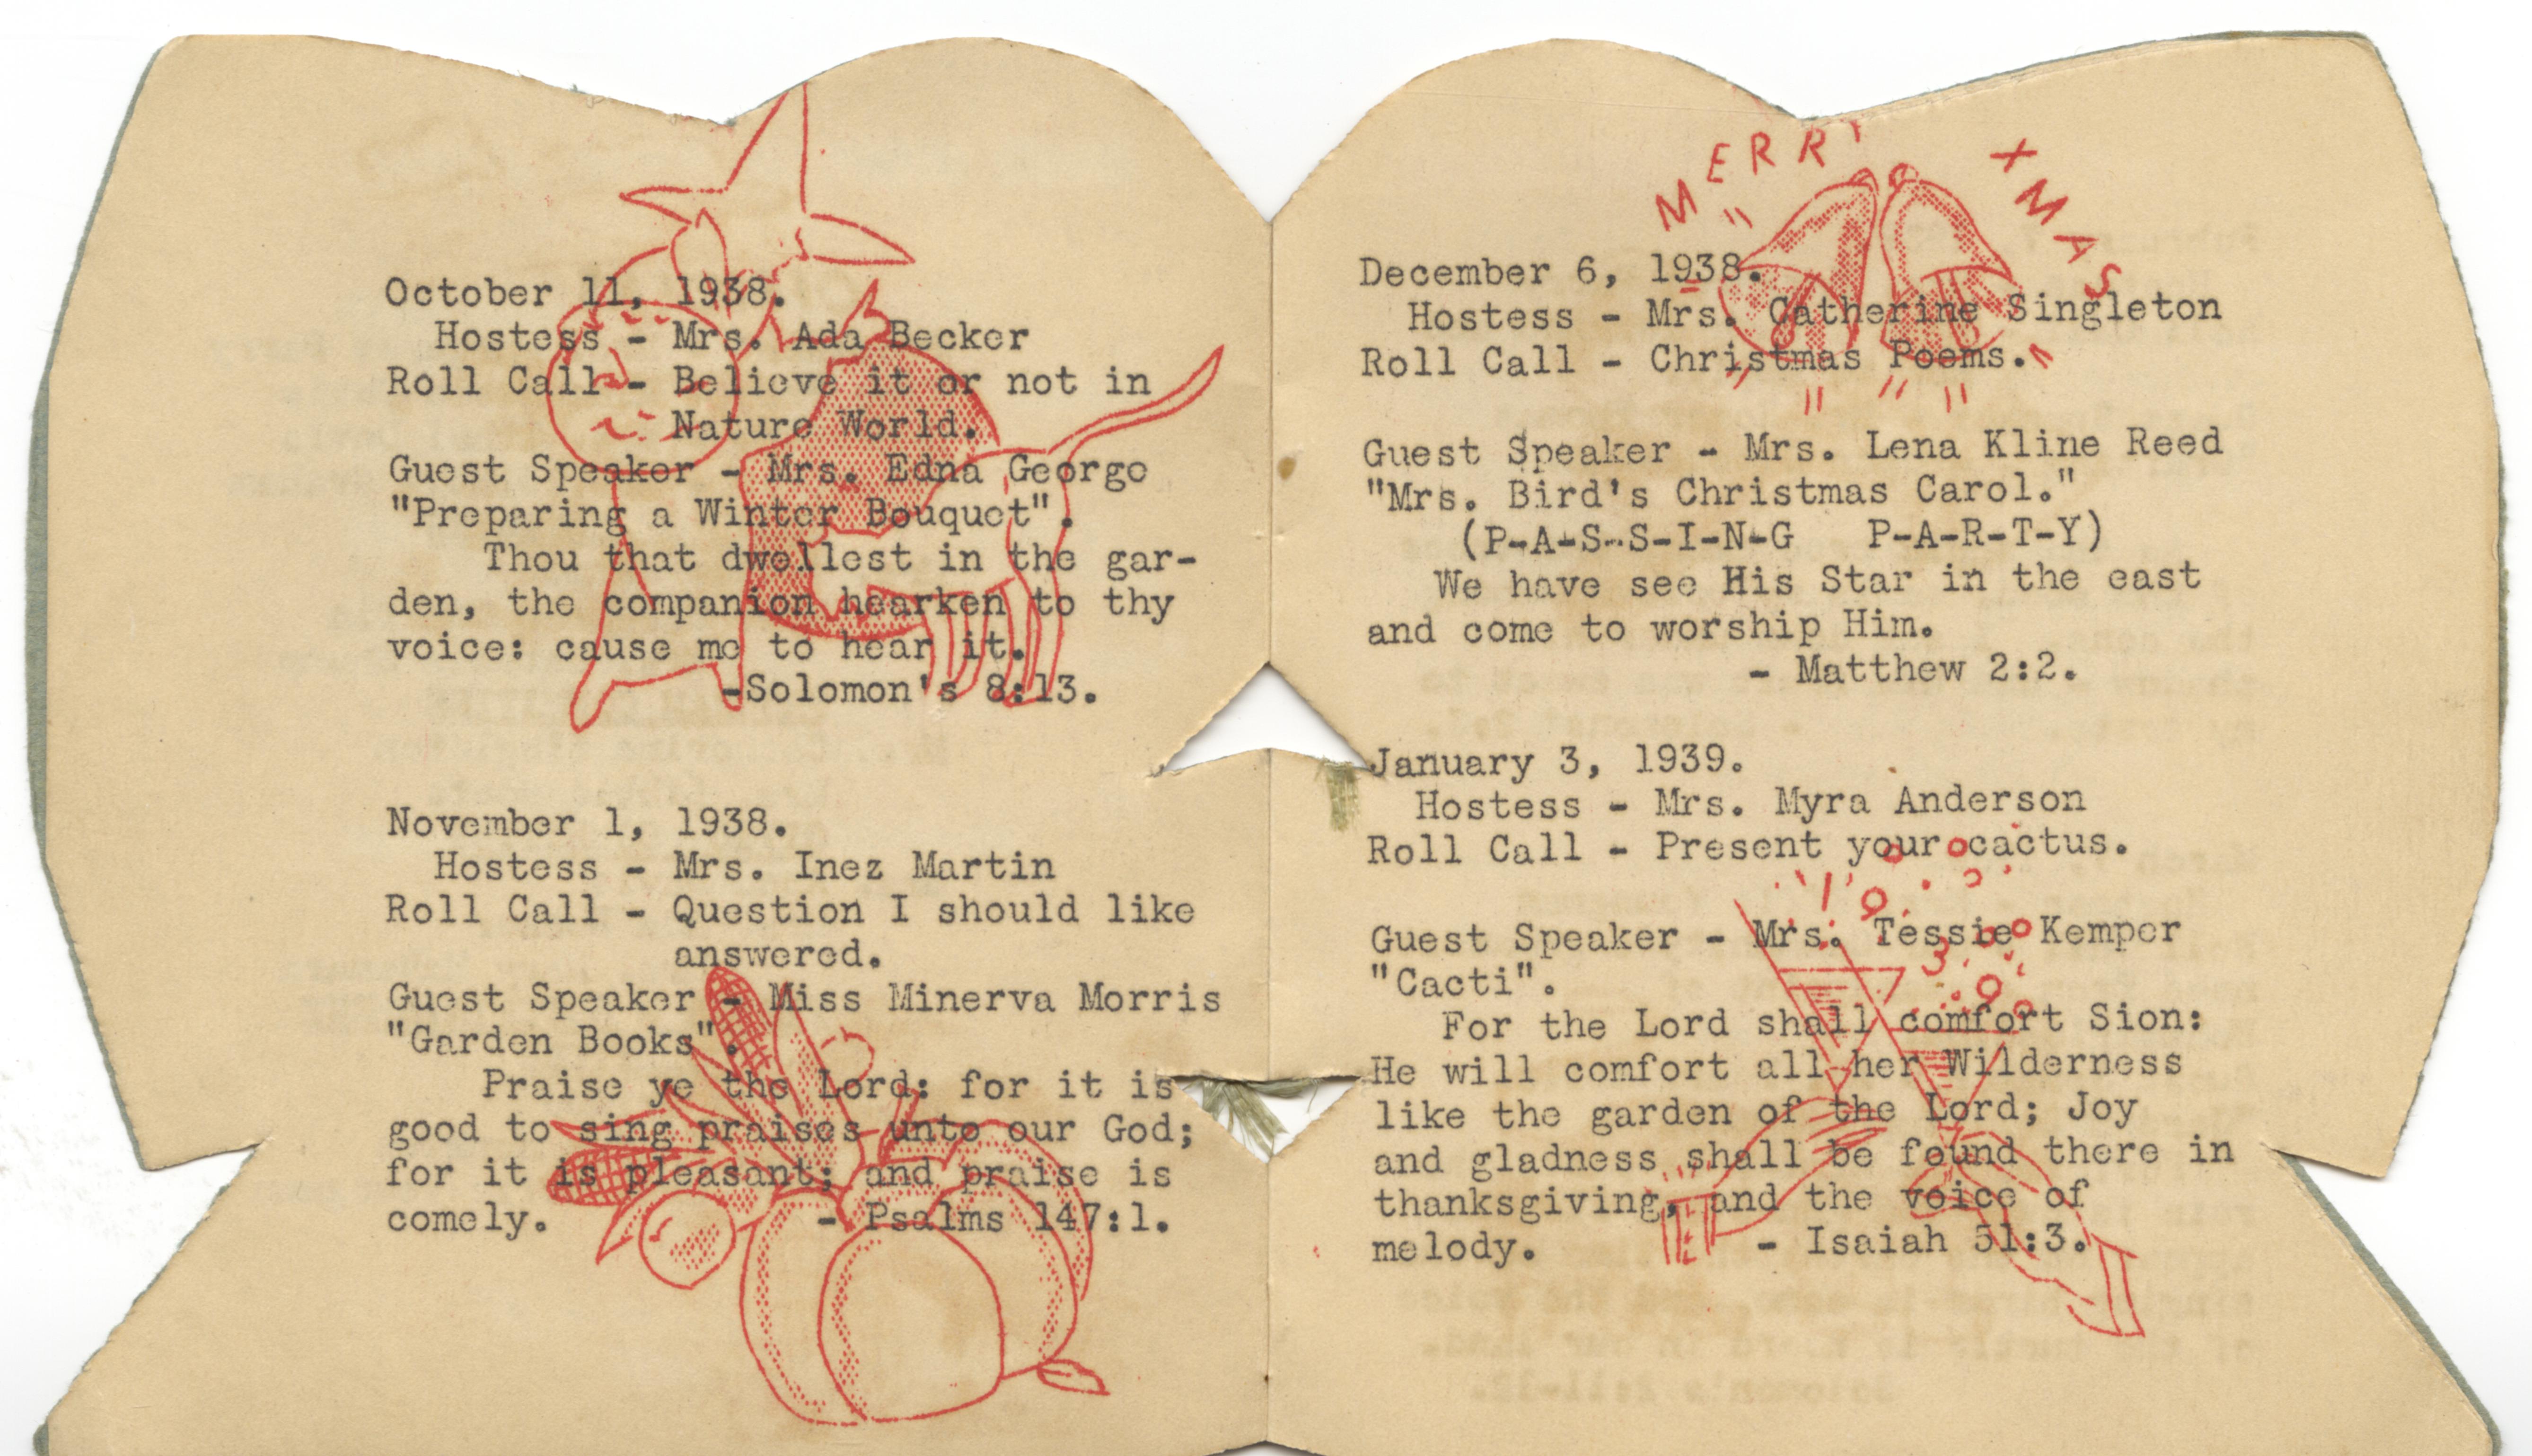 October 11, 1938.
Hostess - Mrs. Ada Becker
Roll Call - Believe it or not in
Nature World.
Guest Speaker - Mrs. Edna George
"Preparing a Winter Bouquet".
Thou that dwellest in the gar-
den, the companion hearken to thy
voice: cause me to hear it.
-Solomon's 8:13.
November 1, 1938.
Hostess - Mrs. Inez Martin
Roll Call - Question I should like
answered.
Guest Speaker - Miss Minerva Morris
"Garden Books".
Praise ye the Lord: for it is
good to sing praises unto our God;
for it is pleasant; and praise is
comely. - Psalms 147:1.
MERRY XMAS
December 6, 1938.
Hostess - Mrs. Catherine Singleton
Roll Call - Christmas Poems.
Guest Speaker - Mrs. Lena Kline Reed
"Mrs. Bird's Christmas Carol."
(P-A-S-S-I-N-G P-A-R-T-Y)
We have see His Star in the east
and come to worship Him.
- Matthew 2:2.
January 3, 1939.
Hostess - Mrs. Myra Anderson
Roll Call - Present your cactus.
Guest Speaker - Mrs. Tessie Kemper
"Cacti".
For the Lord shall comfort Sion:
He will comfort all her Wilderness
like the garden of the Lord; Joy
and gladness shall be found there in
thanksgiving, and the voice of
melody. - Isaiah 51:3.